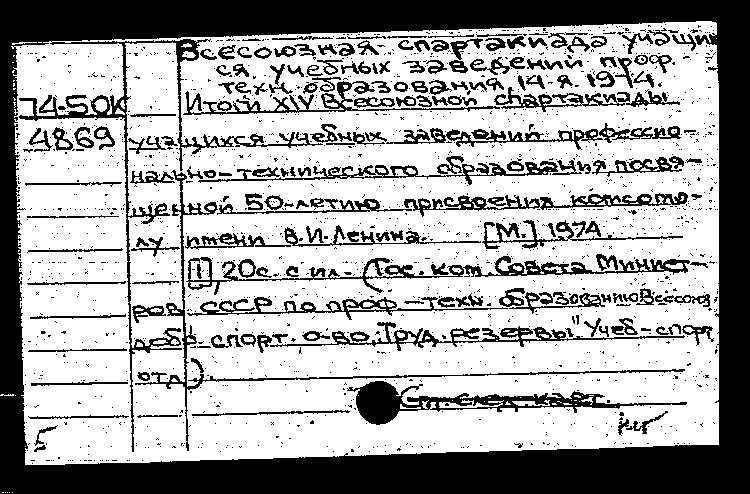 Всесоюзная спартакиада учащих
ся учебных заведений проф.
техн. образования, 14-я. 1974.
74-50К Итоги XIV Всесоюзной спартакиады
4869 учащихся учебных заведений профессио-
нально-технического образования, посвя-
щенной 50-летию присвоения комсомо-
лу имени В.И.Ленина. [М.], 1974.
[1], 20с. с ил. (Гос. ком. Совета Минист-
ров СССР по проф.-техн. образованию Всесоюз.
добр. спорт. о-во "Труд. резервы" Учеб-спорт
отд.).
См. след. карт.
5